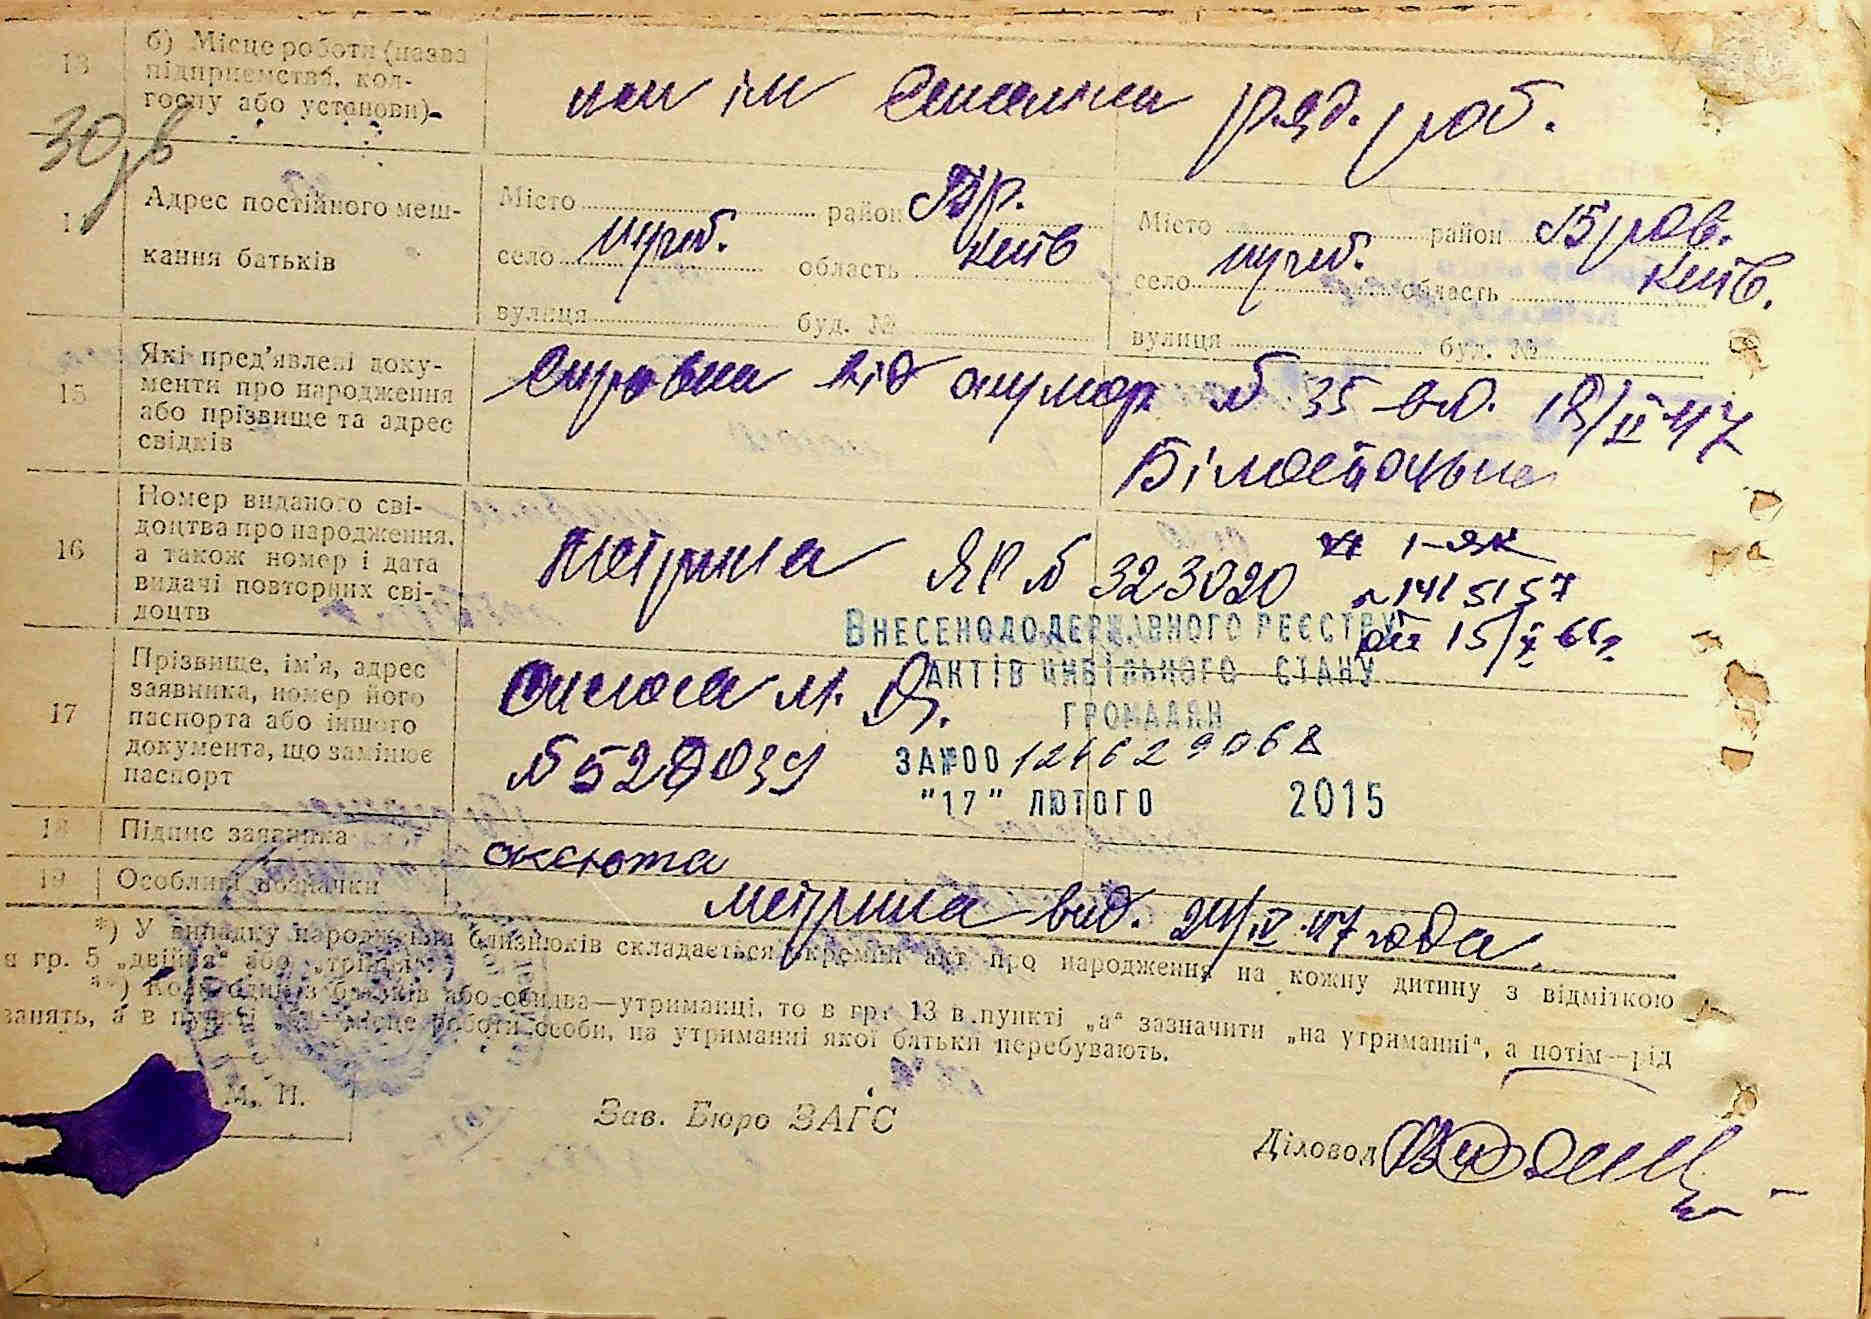 13 б) Місце роботи (назва
підприємства, кол-
госпу або установи)
ім Сталіна ряд. роб.
14 Адрес постійного меш-
кання батьків
Місто район Бр.
село область Київ
вулиця буд. №
Місто район Бров.
село область Київ.
вулиця буд. №
15 Які пред'явлені доку-
менти про народження
або прізвище та адрес
свідків
Справка від акушер. № 35 від. 18/II 47
16 Номер виданого сві-
доцтва про народження,
а також номер і дата
видачі повторних сві-
доцтв
Метрика ЯР № 323020
1-ЯК
№ 1415157
от 15/X 66г
ВНЕСЕНО ДО ДЕРЖАВНОГО РЕЄСТРУ
АКТІВ ЦИВІЛЬНОГО СТАНУ
ГРОМАДЯН
ЗА №00 12462 9068
"17" ЛЮТОГО 2015
17 Прізвище, ім'я, адрес
заявника, номер його
паспорта або іншого
документа, що замінює
паспорт
Оксюта М.
№ 529039
18 Підпис заявника
оксюта
19 Особливі позначки
метрика вид. 24/IV.47 года.
*) У випадку народження близнюків складається окремий акт про народження на кожну дитину з відміткою
в гр. 5 „двійня“ або „трійня“.
**) Коли один з батьків або обидва—утриманці, то в гр. 13 в пункті „а“ зазначити „на утриманні“, а потім—рід
занять, а в пункті місце роботи особи, на утриманні якої батьки перебувають.
М. П.
Зав. Бюро ЗАГС
Діловод